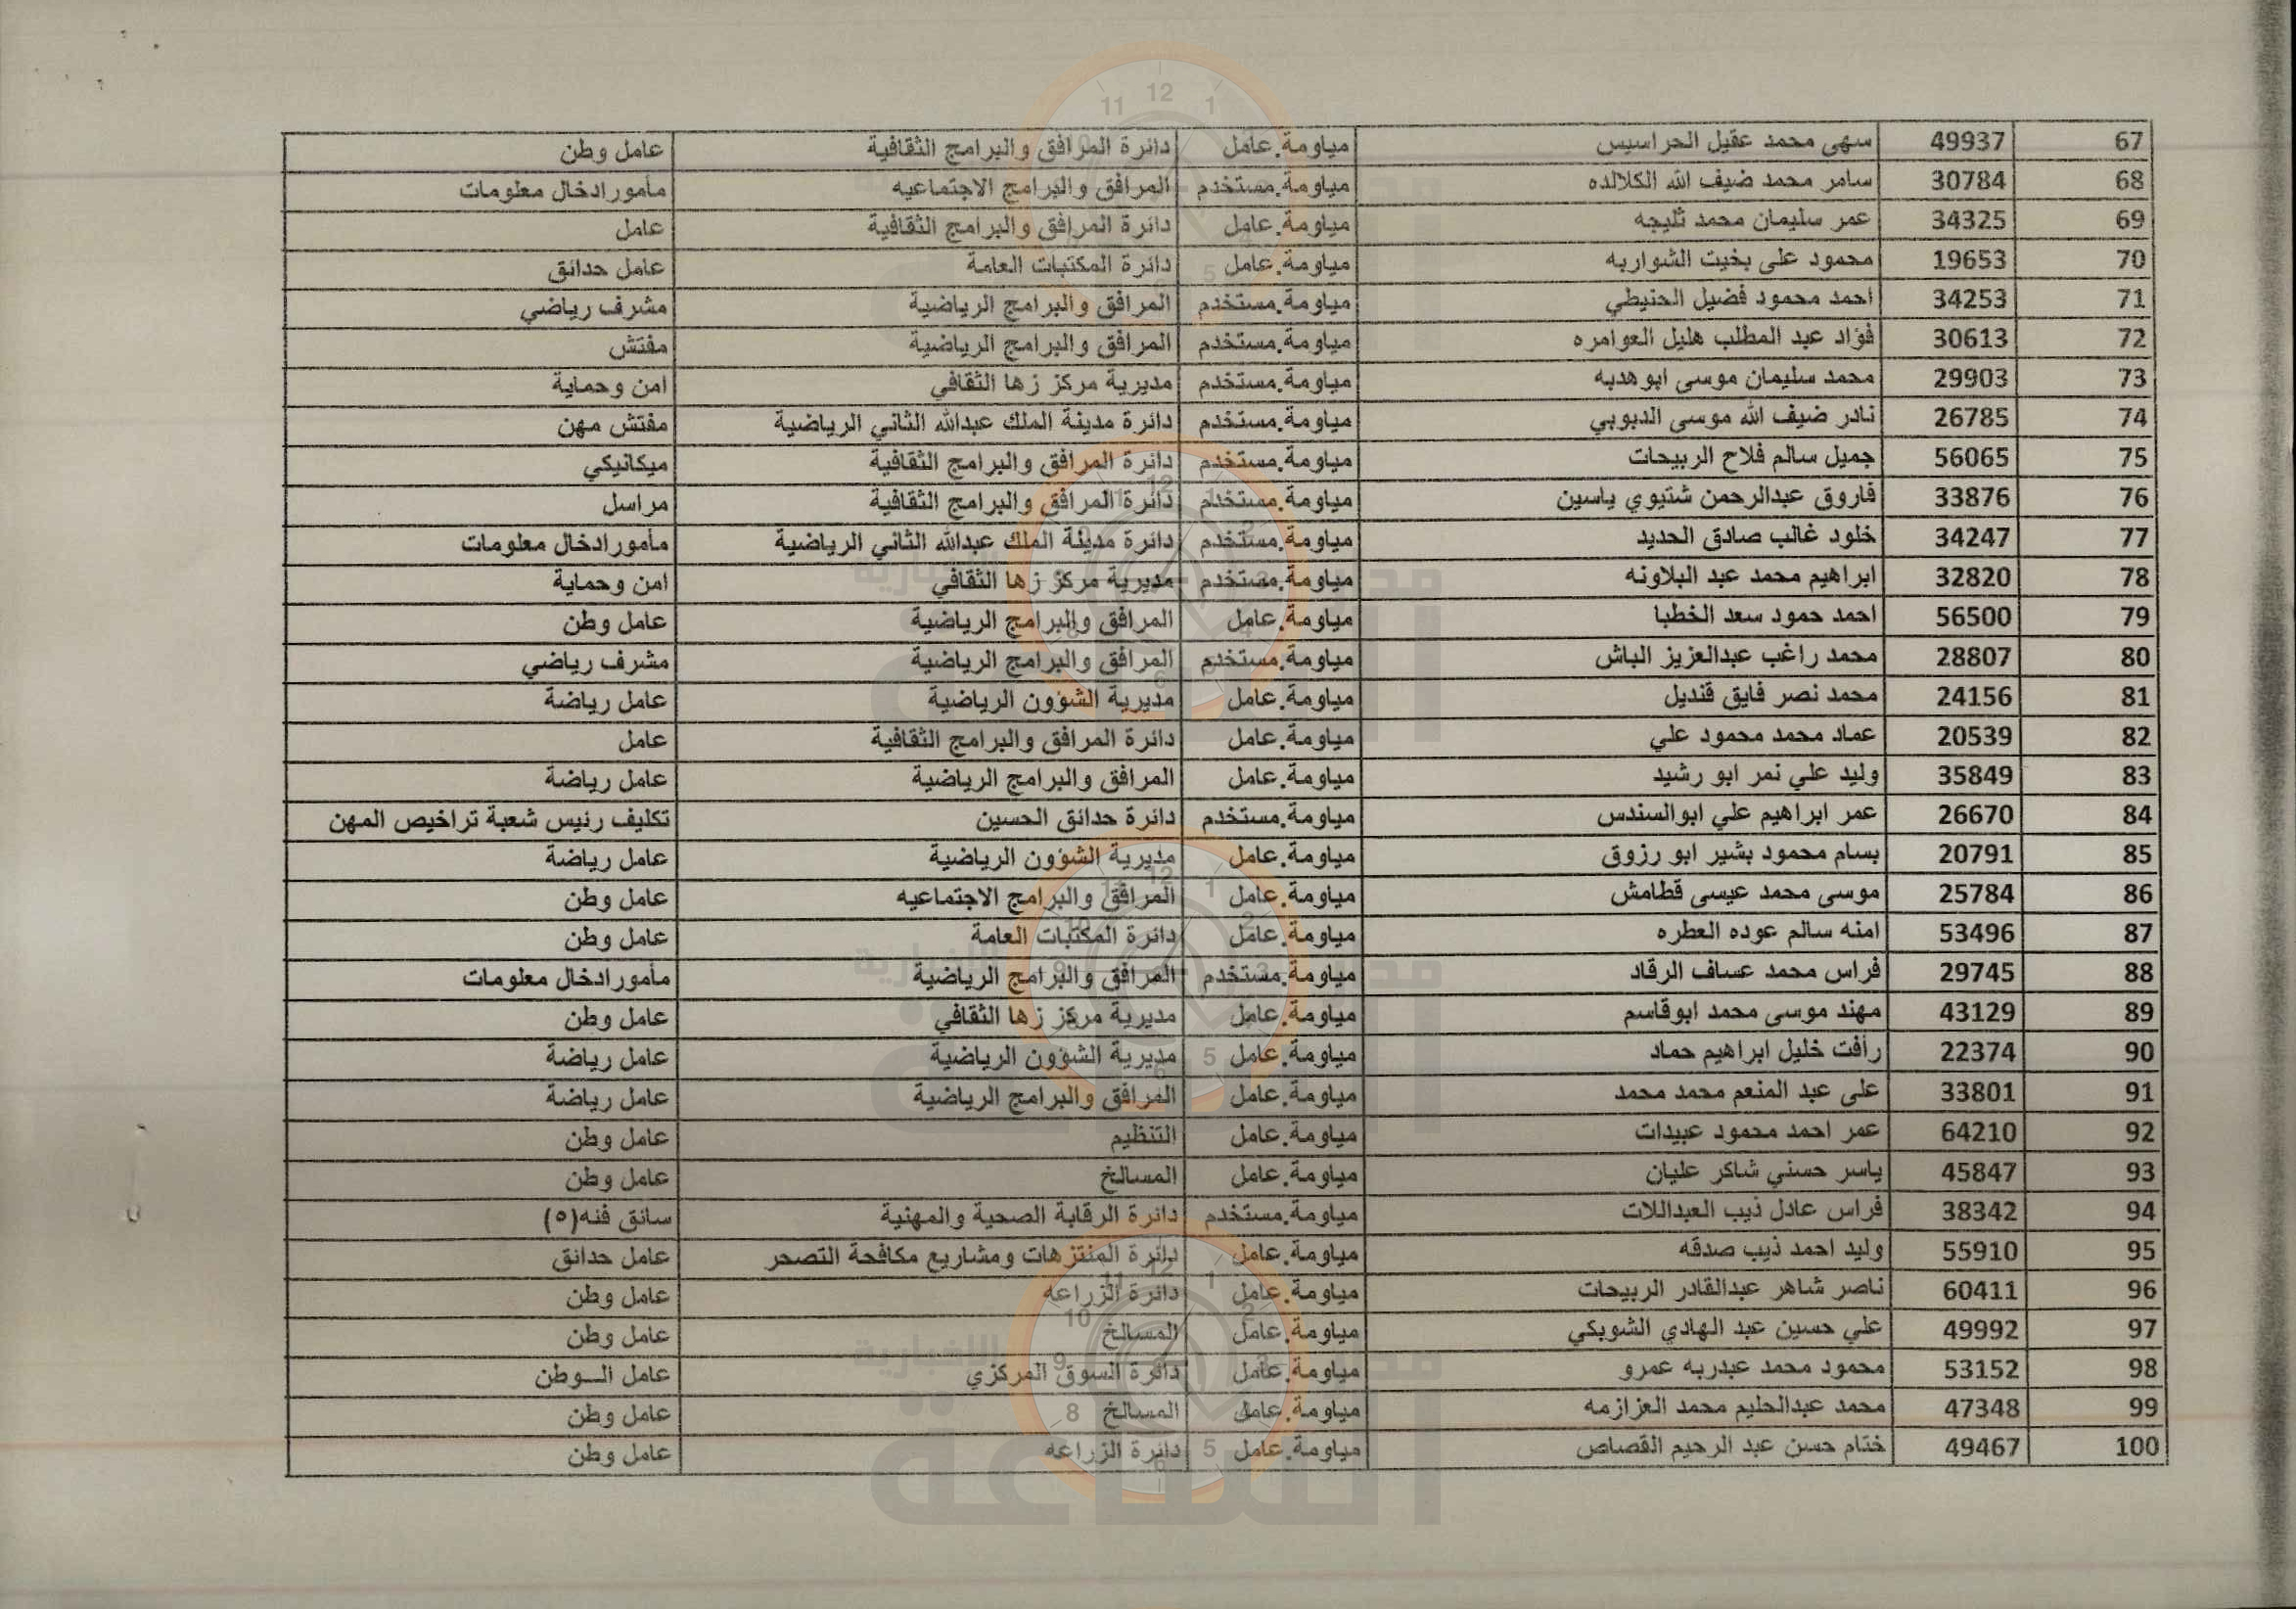 67 49937 سهى محمد عقيل الحراسيس مياومة.عامل دائرة المرافق والبرامج الثقافية عامل وطن
68 30784 سامر محمد ضيف الله الكلالده مياومة.مستخدم المرافق والبرامج الاجتماعيه مأمورادخال معلومات
69 34325 عمر سليمان محمد ثليجه مياومة.عامل دائرة المرافق والبرامج الثقافية عامل
70 19653 محمود على بخيت الشواربه مياومة.عامل دائرة المكتبات العامة عامل حدائق
71 34253 احمد محمود فضيل الحنيطي مياومة.مستخدم المرافق والبرامج الرياضية مشرف رياضي
72 30613 فؤاد عبد المطلب هليل العوامره مياومة.مستخدم المرافق والبرامج الرياضية مفتش
73 29903 محمد سليمان موسى ابوهدبه مياومة.مستخدم مديرية مركز زها الثقافي امن وحماية
74 26785 نادر ضيف الله موسى الدبوبي مياومة.مستخدم دائرة مدينة الملك عبدالله الثاني الرياضية مفتش مهن
75 56065 جميل سالم فلاح الربيحات مياومة.مستخدم دائرة المرافق والبرامج الثقافية ميكانيكي
76 33876 فاروق عبدالرحمن شتيوي ياسين مياومة.مستخدم دائرة المرافق والبرامج الثقافية مراسل
77 34247 خلود غالب صادق الحديد مياومة.مستخدم دائرة مدينة الملك عبدالله الثاني الرياضية مأمورادخال معلومات
78 32820 ابراهيم محمد عبد البلاونه مياومة.مستخدم مديرية مركز زها الثقافي امن وحماية
79 56500 احمد حمود سعد الخطبا مياومة.عامل المرافق والبرامج الرياضية عامل وطن
80 28807 محمد راغب عبدالعزيز الباش مياومة.مستخدم المرافق والبرامج الرياضية مشرف رياضي
81 24156 محمد نصر فايق قنديل مياومة.عامل مديرية الشؤون الرياضية عامل رياضة
82 20539 عماد محمد محمود علي مياومة.عامل دائرة المرافق والبرامج الثقافية عامل
83 35849 وليد علي نمر ابو رشيد مياومة.عامل المرافق والبرامج الرياضية عامل رياضة
84 26670 عمر ابراهيم علي ابوالسندس مياومة.مستخدم دائرة حدائق الحسين تكليف رئيس شعبة تراخيص المهن
85 20791 بسام محمود بشير ابو رزوق مياومة.عامل مديرية الشؤون الرياضية عامل رياضة
86 25784 موسى محمد عيسى قطامش مياومة.عامل المرافق والبرامج الاجتماعيه عامل وطن
87 53496 امنه سالم عوده العطره مياومة.عامل دائرة المكتبات العامة عامل وطن
88 29745 فراس محمد عساف الرقاد مياومة.مستخدم المرافق والبرامج الرياضية مأمورادخال معلومات
89 43129 مهند موسى محمد ابوقاسم مياومة.عامل مديرية مركز زها الثقافي عامل وطن
90 22374 رأفت خليل ابراهيم حماد مياومة.عامل مديرية الشؤون الرياضية عامل رياضة
91 33801 على عبد المنعم محمد محمد مياومة.عامل المرافق والبرامج الرياضية عامل رياضة
92 64210 عمر احمد محمود عبيدات مياومة.عامل التنظيم عامل وطن
93 45847 ياسر حسني شاكر عليان مياومة.عامل المسالخ عامل وطن
94 38342 فراس عادل ذيب العبداللات مياومة.مستخدم دائرة الرقابة الصحية والمهنية سائق فئه(٥)
95 55910 وليد احمد ذيب صدقه مياومة.عامل دائرة المنتزهات ومشاريع مكافحة التصحر عامل حدائق
96 60411 ناصر شاهر عبدالقادر الربيحات مياومة.عامل دائرة الزراعه عامل وطن
97 49992 علي حسين عبد الهادي الشوبكي مياومة.عامل المسالخ عامل وطن
98 53152 محمود محمد عبدربه عمرو مياومة.عامل دائرة السوق المركزي عامل الـوطن
99 47348 محمد عبدالحليم محمد العزازمه مياومة.عامل المسالخ عامل وطن
100 49467 ختام حسن عبد الرحيم القصاص مياومة.عامل دائرة الزراعه عامل وطن